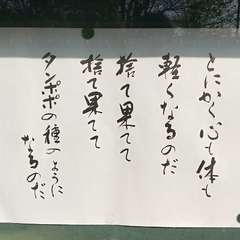 とにかく心も体も
軽くなるのだ
捨て果てて
捨て果てて
タンポポの種のように
なるのだ